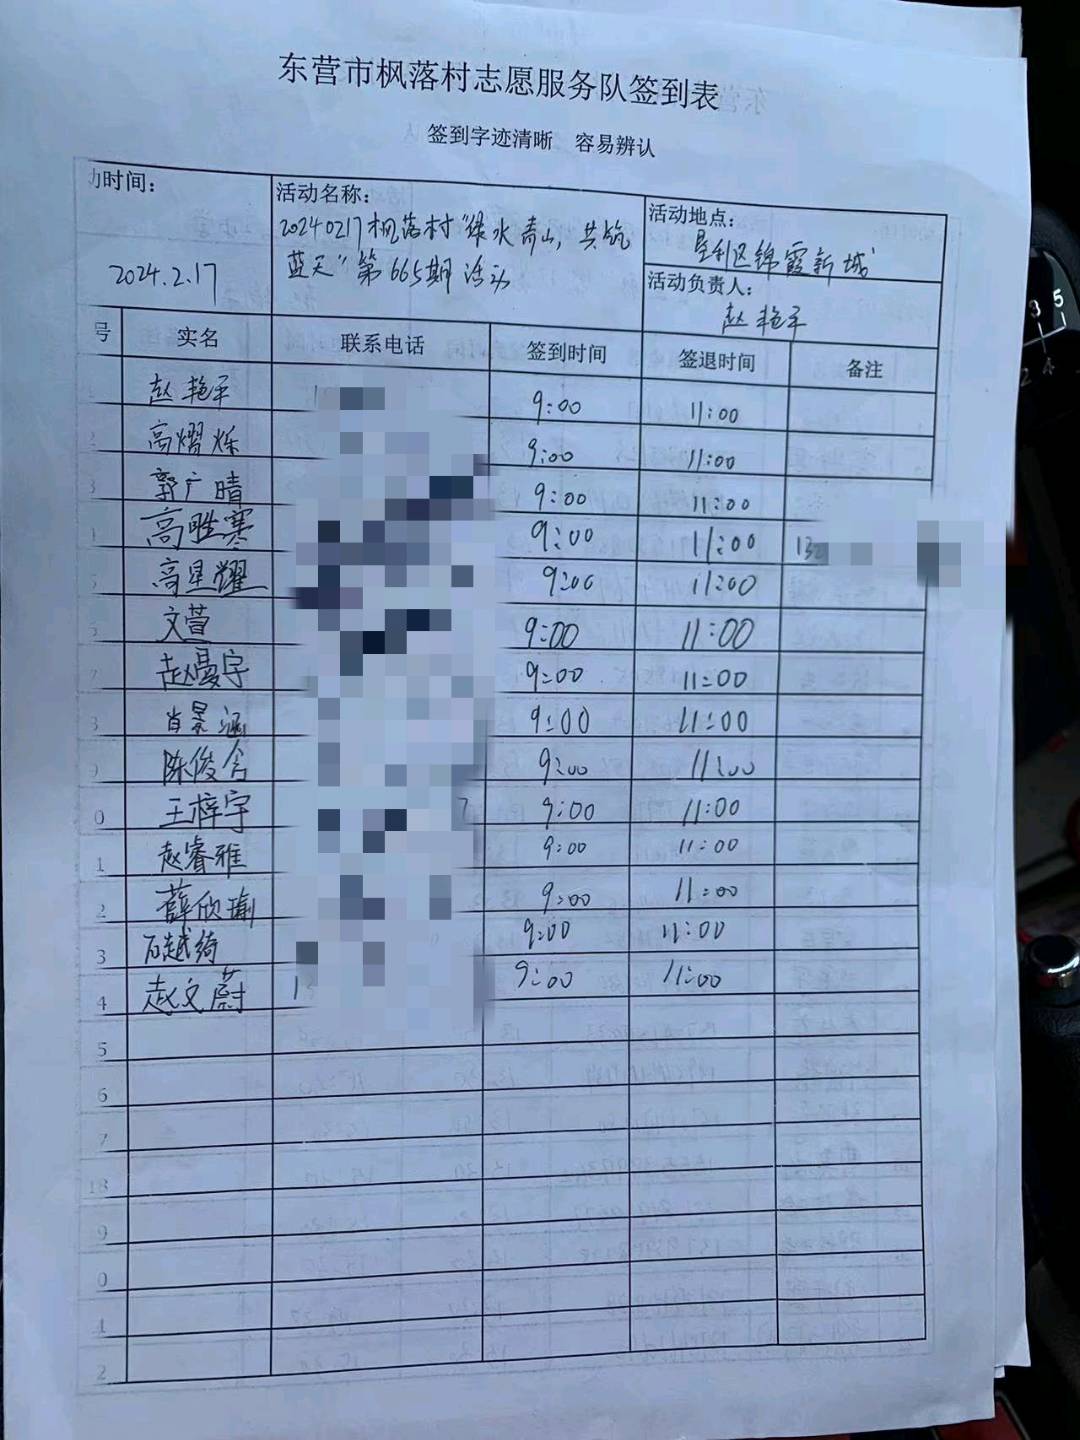 东营市枫落村志愿服务队签到表
签到字迹清晰 容易辨认
动时间：
2024.2.17
活动名称：
20240217枫落村“绿水青山，共筑
蓝天”第665期活动
活动地点：
垦利区锦霞新城
活动负责人：
赵艳平
号 实名 联系电话 签到时间 签退时间 备注
赵艳平 1 9:00 11:00
2 高熠烁 9:00 11:00
3 郭广晴 9:00 11:00
高胜赛 9:00 11:00 132
5 高星耀 9:00 11:00
文萱 9:00 11:00
7 赵曼宇 9:00 11:00
肖景涵 9:00 11:00
陈俊含 9:00 11:00
0 王梓宇 7 9:00 11:00
1 赵睿雅 9:00 11:00
2 薛欣瑜 9:00 11:00
3 石越绮 9:00 11:00
4 赵文蔚 1 9:00 11:00
5
6
7
18
9
0
1
2